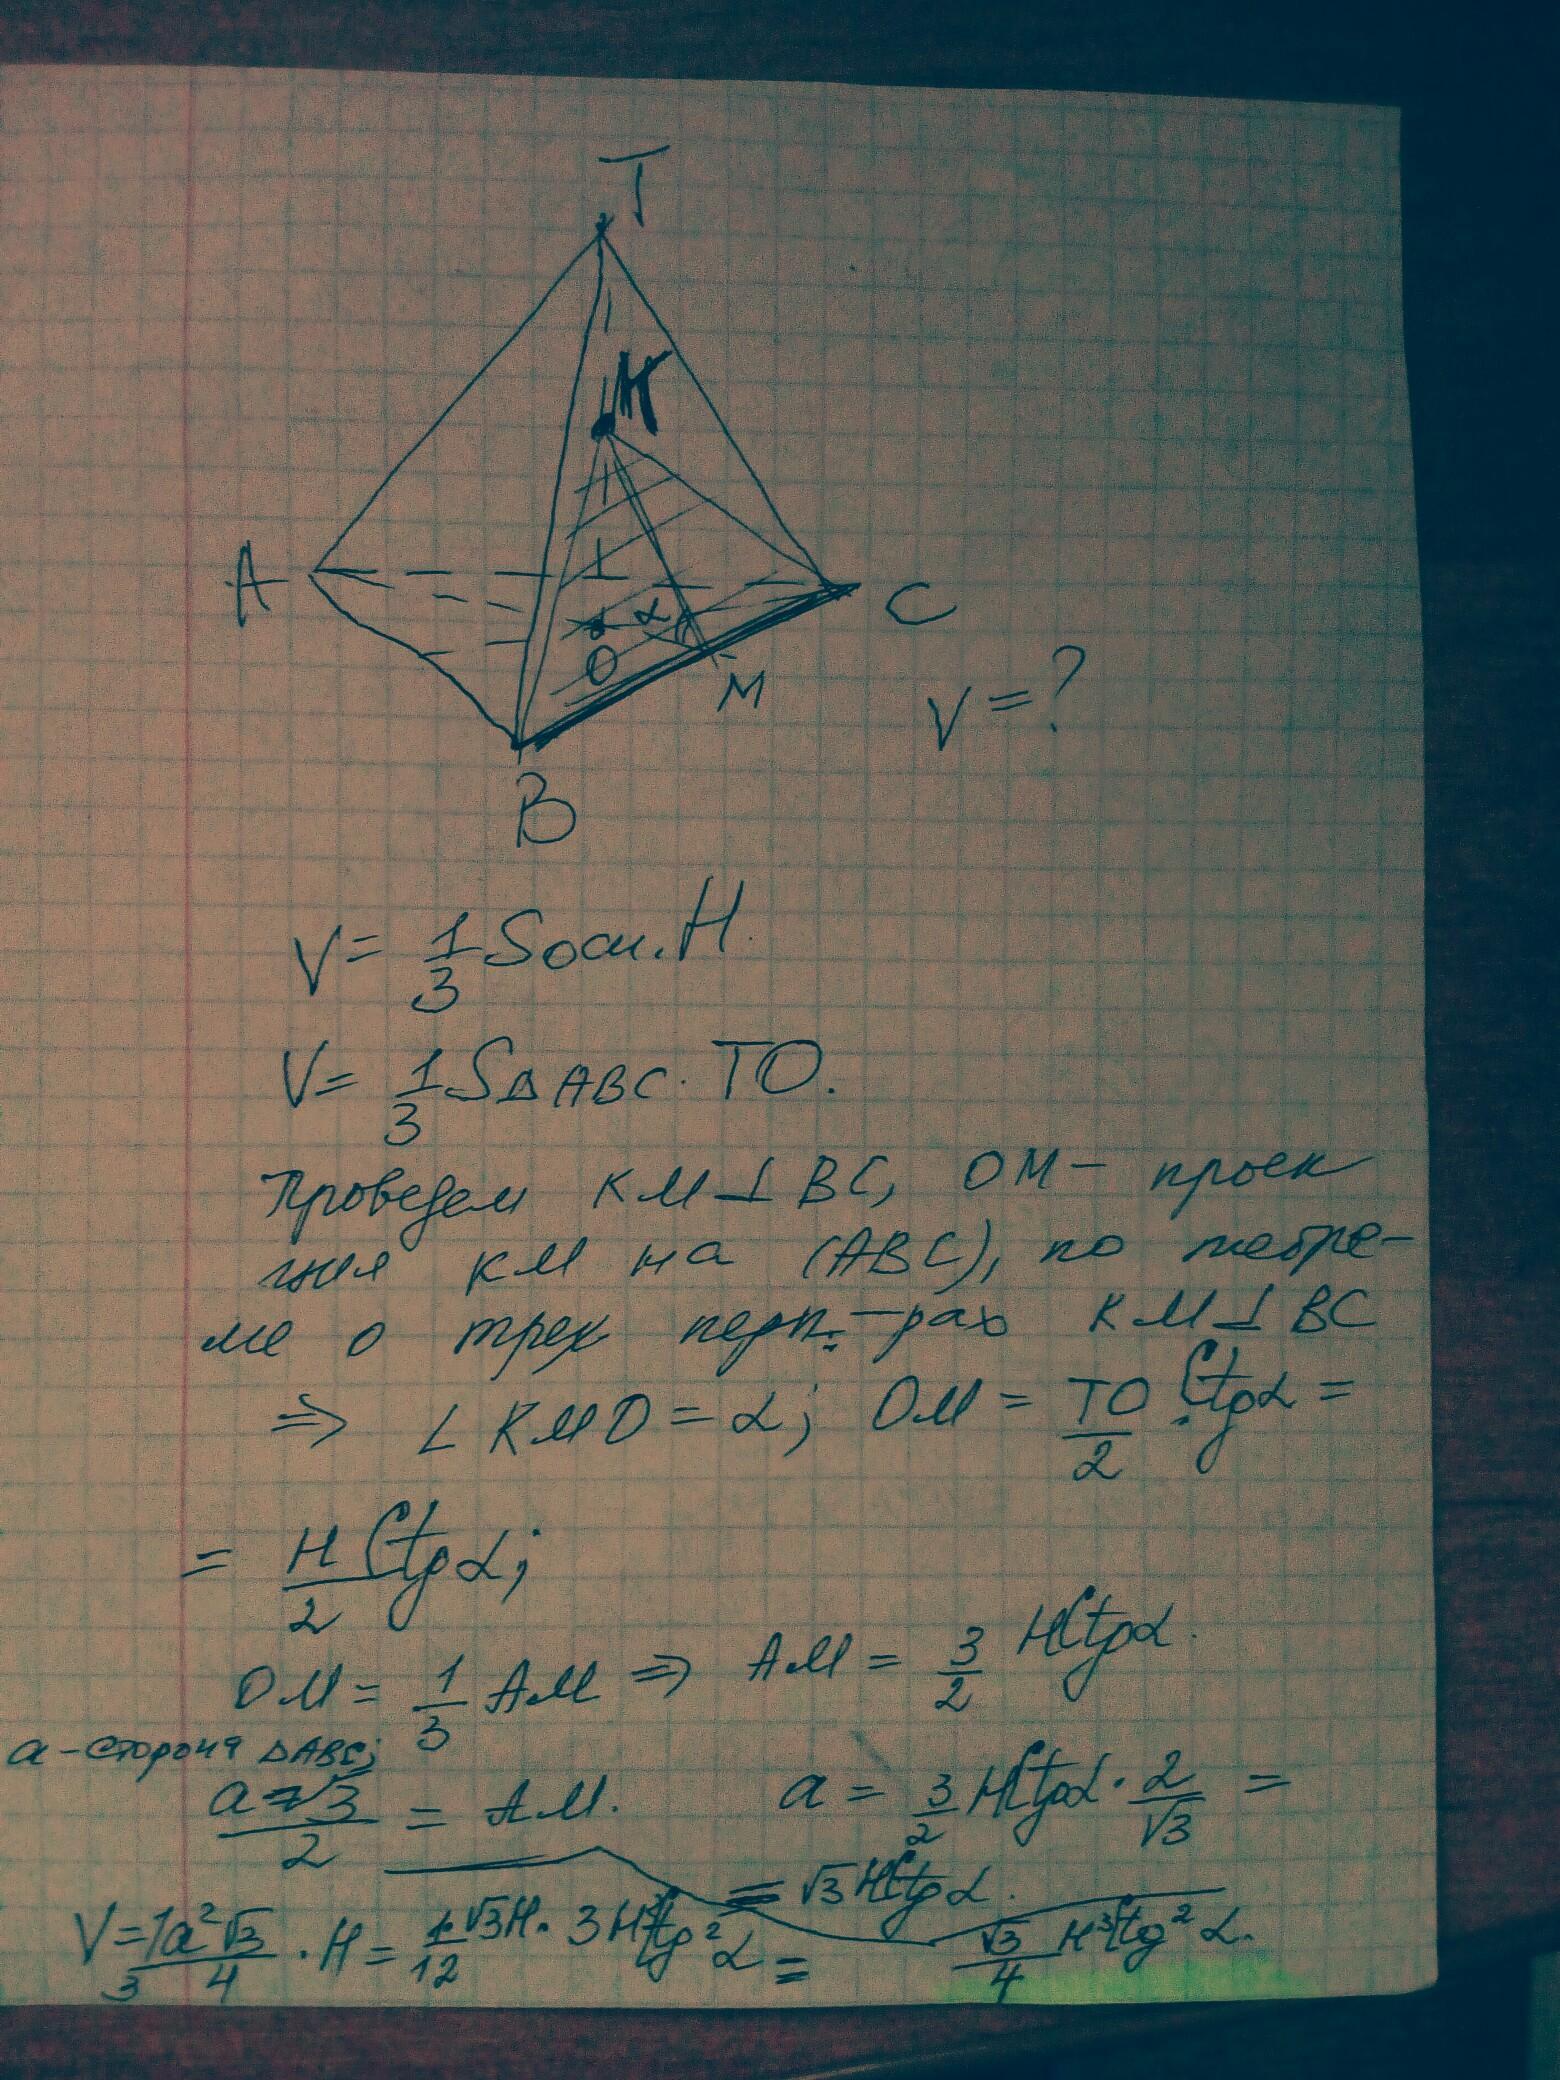 T
K
A
C
α
O
M
V = ?
B
V = 1/3 Sосн. H.
V = 1/3 S△ABC · TO.
Проведем KM ⊥ BC, OM – проек
ция KM на (ABC), по теоре-
ме о трех перп.–рах KM ⊥ BC
⇒ ∠KMO = α; OM = TO/2 · Ctgα =
= H/2 Ctgα;
OM = 1/3 AM ⇒ AM = 3/2 HCtgα.
a – сторона △ABC;
a√3/2 = AM. a = 3/2 HCtgα · 2/√3 =
= √3 HCtgα.
V = 1/3 a²√3/4 · H = 1/12 √3H · 3H²Ctg²α = √3/4 H³Ctg²α.